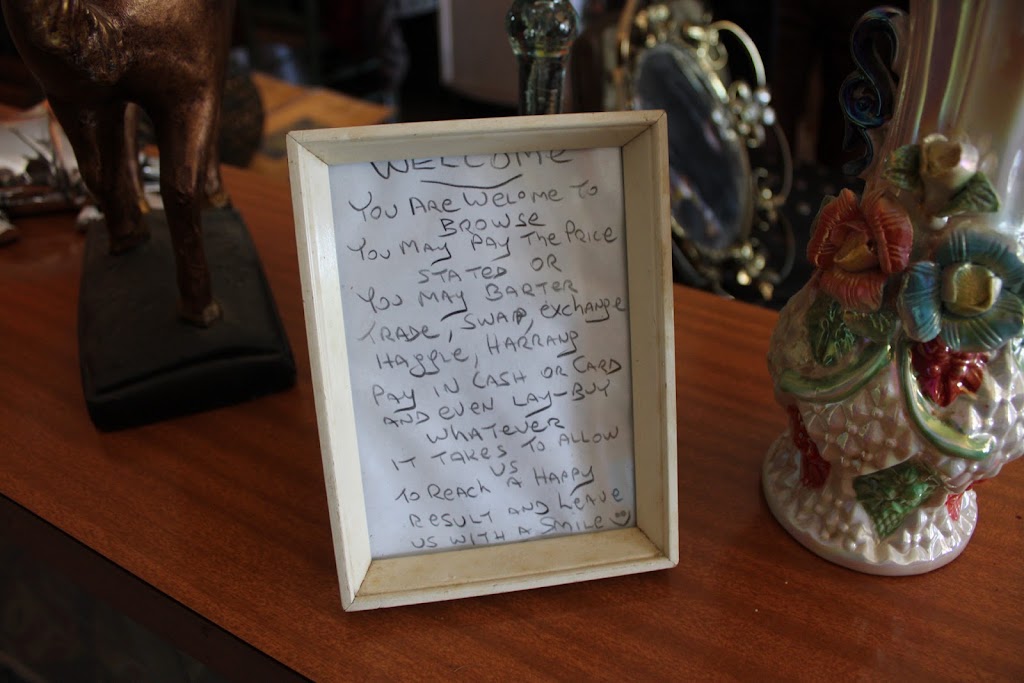 WELCOME
YOU ARE WELOME TO
BROWSE
YOU MAY PAY THE PRICE
STATED OR
YOU MAY BARTER
TRADE, SWAP, EXCHANGE
HAGGLE, HARRANG
PAY IN CASH OR CARD
AND EVEN LAY-BUY
WHATEVER
IT TAKES TO ALLOW
US
TO REACH A HAPPY
RESULT AND LEAVE
US WITH A SMILE